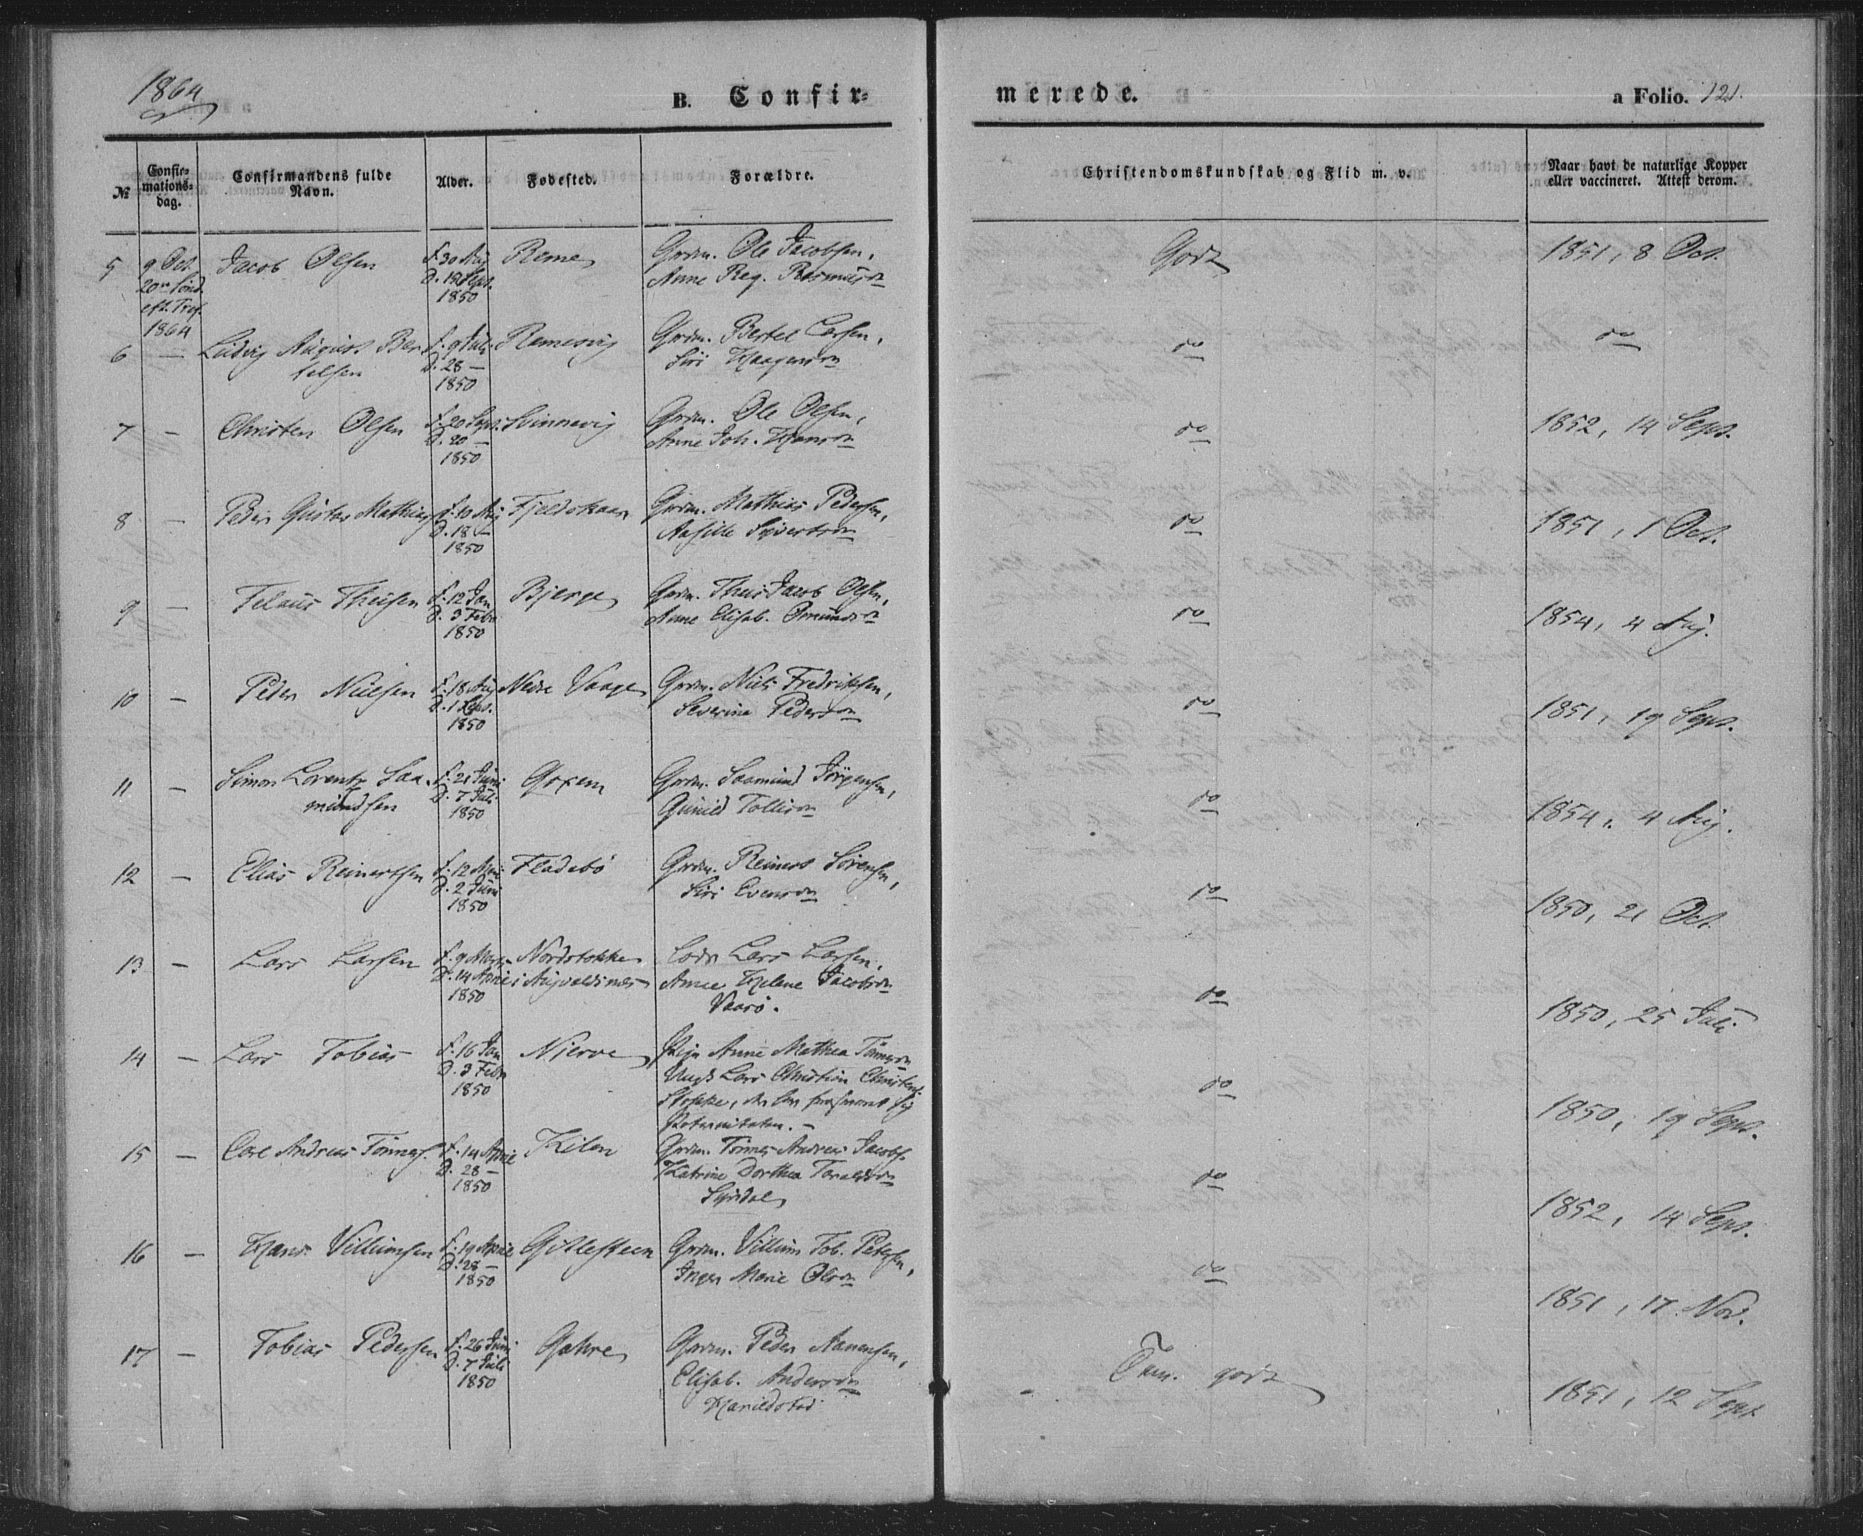 1864
B. Confirmerede.
a Folio. 121.
№
Confirmations-dag.
Confirmandens fulde Navn.
Alder.
Fødested.
Forældre.
Christendomskundskab og Flid m. v.
Naar havt de naturlige Kopper eller vaccineret. Attest derom.
5 9 Oct. 20de Sönd. eft. Tref. 1864 Jacob Olsen f. 30 Aug D. 15 Sept. 1850 Reme Grdm. Ole Jacobsen, Anne Reg. Rasmusdn Godt 1851, 8 Oct.
6 — Ludvig August Bertelsen f. 9 Juli D. 28 — 1850 Remesvig Grdm. Bertel Larsen, Siri Haagensdn do do
7 — Christen Olsen f. 20 Sept. D. 20 — 1850 Svinnevig Grdm. Ole Olsen, Anne Joh. Hansdn do 1852, 14 Sept.
8 — Peder Gustav Mathias f. 10 Aug D. 18 — 1850 Fjeldskaar Grdm. Mathias Pedersen, Sivertsdn do 1851, 1 Oct.
9 — Telaus Theisen f. 12 Jan D. 3 Febr 1850 Bjerge Grdm. Theis Jacob Olsen, Anne Elisab. Omundsdn do 1854, 4 Aug.
10 — Peder Nielsen f. 18 Aug D. 1 Sept. 1850 Nedre Vaage Grdm. Niels Fredriksen, Severine Pedersdn do 1851, 19 Sept.
11 — Simon Lorentz Saamundsen f. 21 Juni D. 7 Juli 1850 Grdm. Saamund Jörgensen, Gunild Tollisdn do 1854, 4 Aug.
12 — Elias Reinertsen f. 12 D. 2 Juni 1850 Fladebö Grdm. Reinert Sörensen, Siri Evensdn do 1850, 21 Oct.
13 — Lars Larsen f. 9 Marts D. 14 April 1850 Nordstokke i Augvaldsnæs Lods Lars Larsen, Anne Helene Jacobsdn Vaarö. do 1850, 25 Juli
14 — Lars Tobias f. 16 Jan D. 3 Febr 1850 Njerve Pige Anne Mathea Tönnesdn Ungk Lars Christian Christens. Stokke, der har Paterniteten. — do 1850, 19 Sept.
15 — Carl Andreas Tönnes. f. 14 April D. 28 — 1850 Kilen Grdm. Tönnes Andreas Jacobs. Katrine Dorthea Toraldsdn Syrdal do 1852, 14 Sept.
16 — Hans Villumsen f. 19 April D. 28 — 1850 Gitlesteen Grdm. Villum Tob. Petersen, Inger Marie Olsdn do 1851, 17 Nov.
17 — Tobias Pedersen f. 26 Juni D. 7 Juli 1850 Gahre Grdm. Peder Aanensen, Elisab. Andersdn Harildstad Tem. godt 1851, 12 Sept.